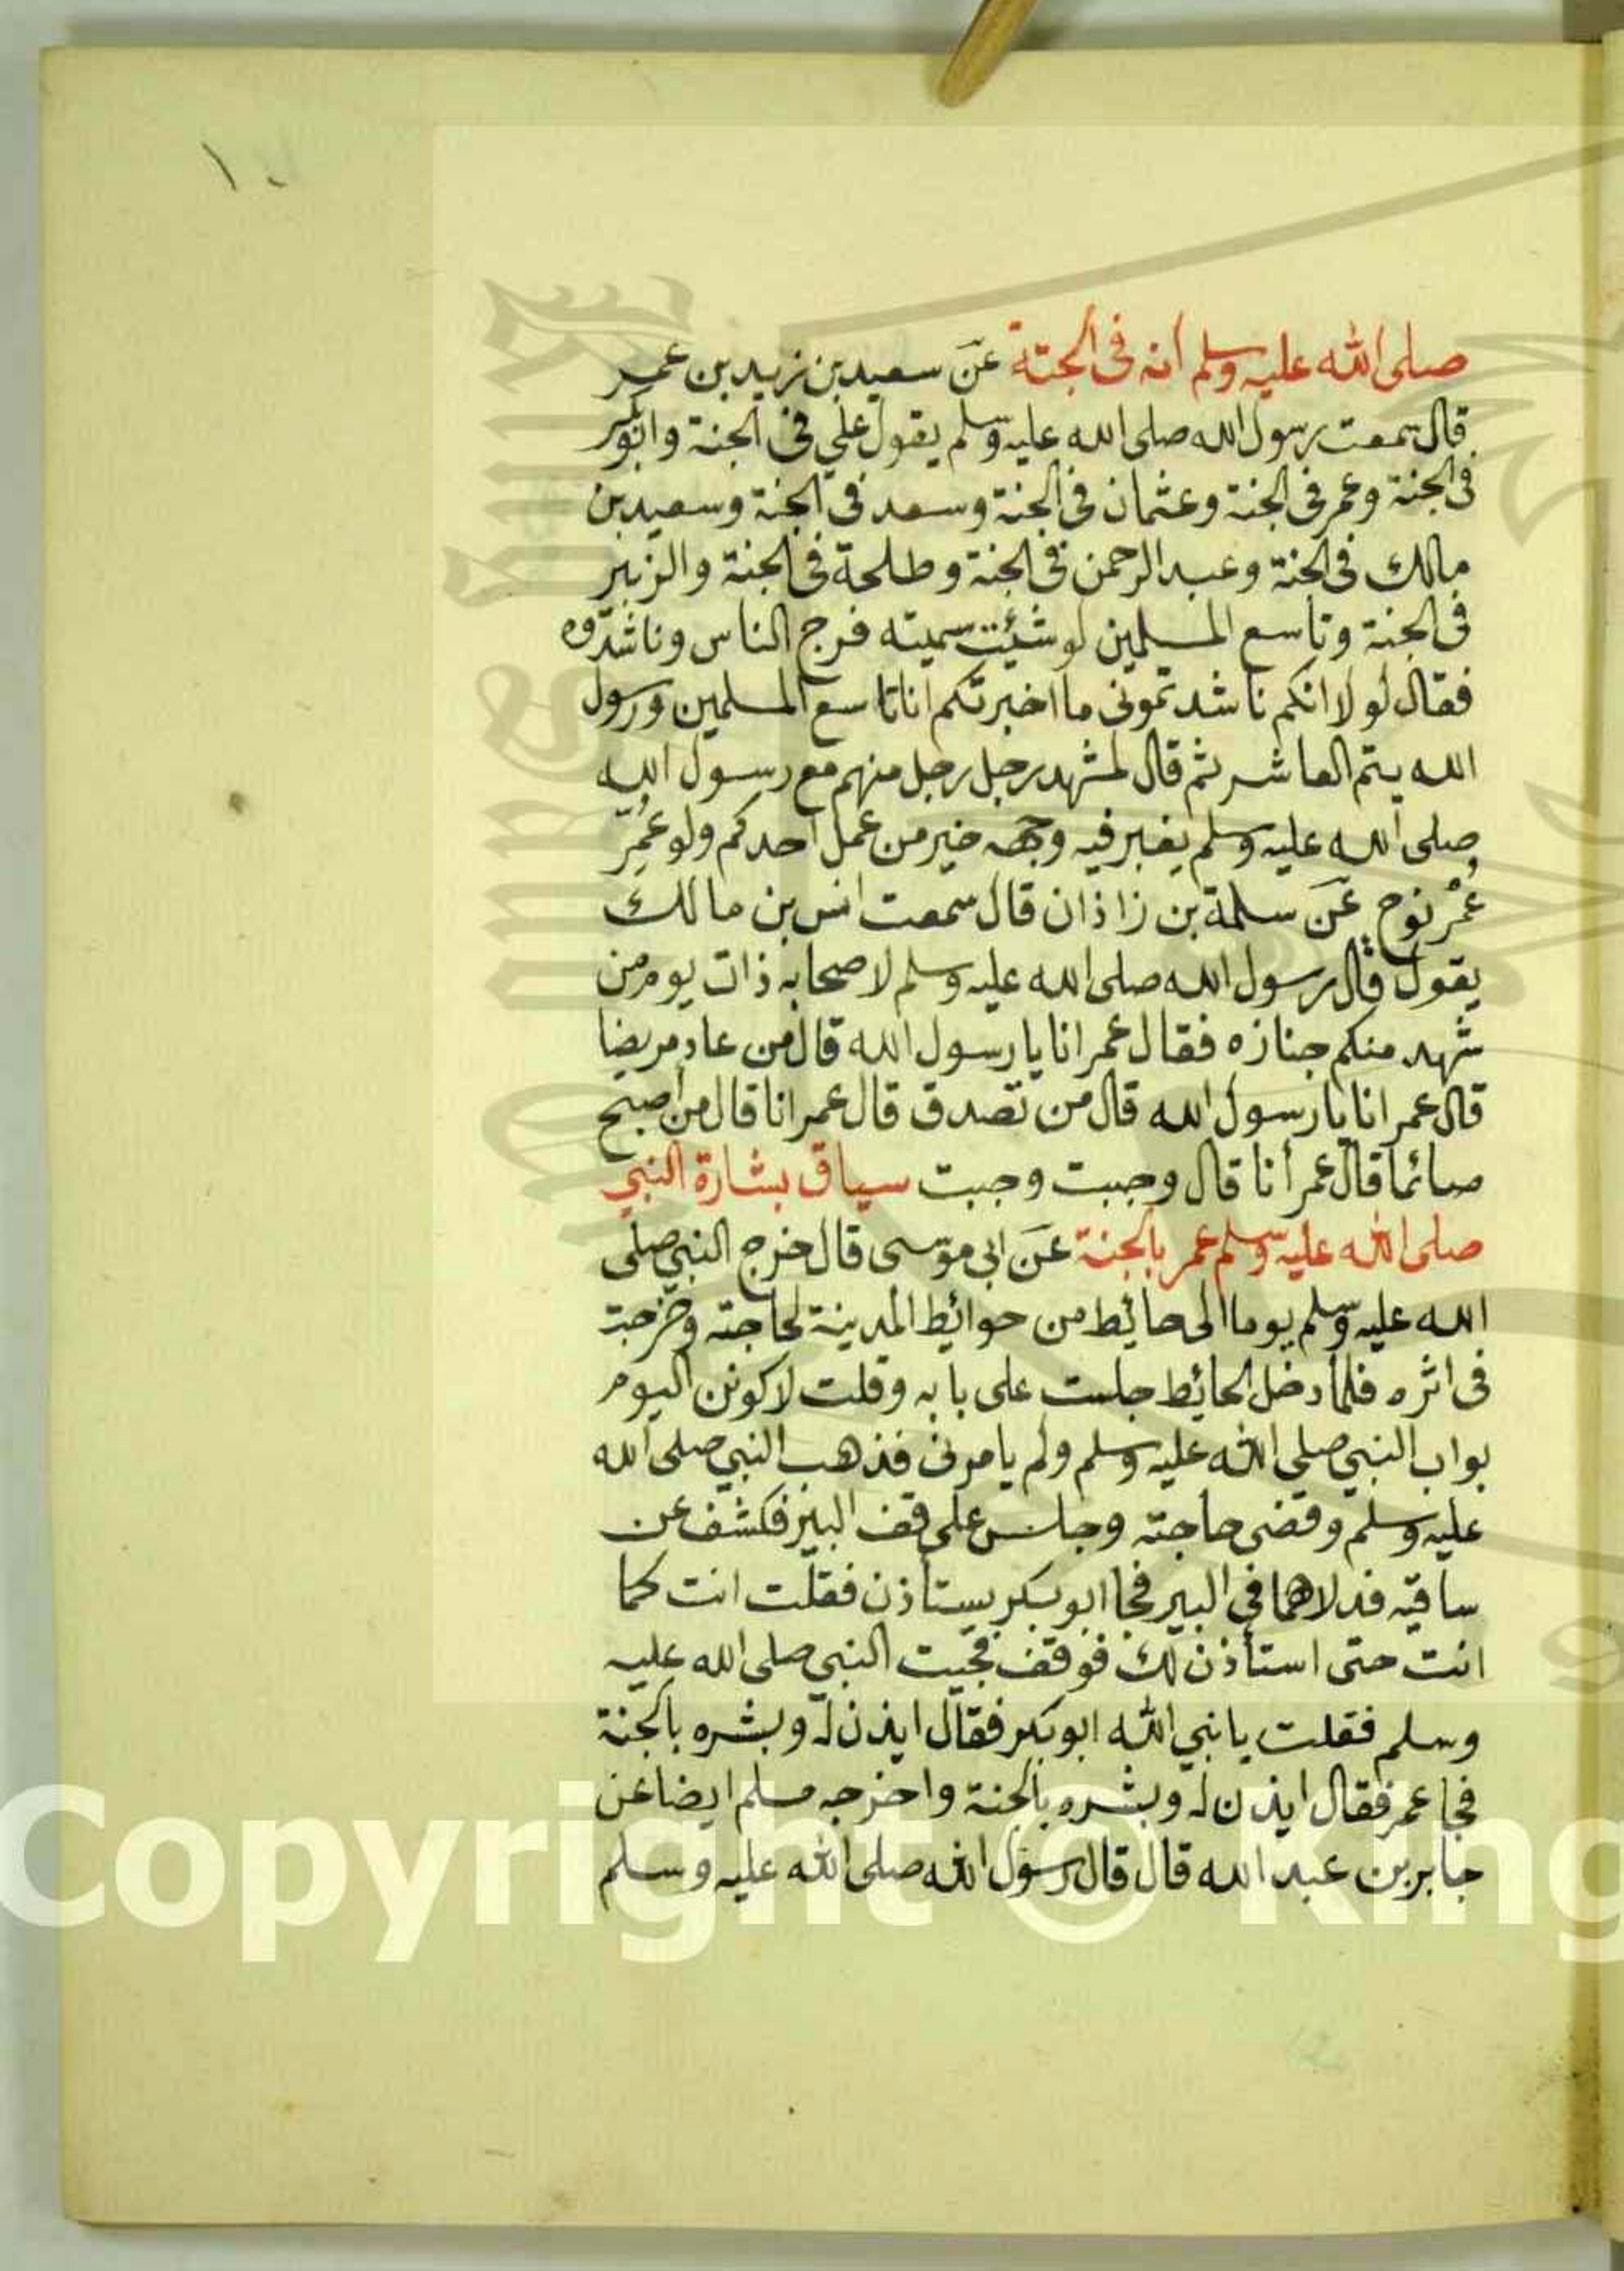 ١٠
صلى الله عليه وسلم انه فى الجنة عن سعيد بن زيد بن عمر
قال سمعت رسول الله صلى الله عليه وسلم يقول علي في الجنة وابوبكر
فى الجنة وعمر فى الجنة وعثمان في الجنة وسعد في الجنة وسعيد بن
مالك فى الجنة وعبد الرحمن في الجنة وطلحة في الجنة والزبير
فى الجنة وتاسع المسلمين لو شئت سميته فرج الناس وناشدوه
فقال لو لا انكم ناشدتموني ما اخبرتكم انا تاسع المسلمين ورسول
الله يتم العاشر ثم قال لمشهد رجل رجل منهم مع رسول الله
صلى الله عليه وسلم يغبر فيه وجهه خير من عمل احدكم ولو عُمِّرَ
عُمْرَ نوح عن سلمة بن زاذان قال سمعت انس بن مالك
يقول قال رسول الله صلى الله عليه وسلم لاصحابه ذات يوم من
شهد منكم جنازه فقال عمر انا يا رسول الله قال من عاد مريضا
قال عمر انا يا رسول الله قال من تصدق قال عمر انا قال من اصبح
صائما قال عمر أنا قال وجبت وجبت سياق بشارة النبي
صلى الله عليه وسلم عمر بالجنة عن ابى موسى قال خرج النبي صلى
الله عليه وسلم يوما الى حائط من حوائط المدينة لحاجته وخرجت
فى اثره فلما دخل الحائط جلست على بابه وقلت لاكونن اليوم
بواب النبي صلى الله عليه وسلم ولم يامرني فذهب النبي صلى الله
عليه وسلم وقضى حاجته وجلس على قف البير فكشف عن
ساقيه فدلاهما في البير فجا ابو بكر يستأذن فقلت انت كما
انت حتى استأذن لك فوقف فجيت النبي صلى الله عليه
وسلم فقلت يا نبي الله ابو بكر فقال ايذن له وبشره بالجنة
فجا عمر فقال ايذن له وبشره بالجنة واخرجه مسلم ايضا عن
جابر بن عبد الله قال قال رسول الله صلى الله عليه وسلم
Copyright © King